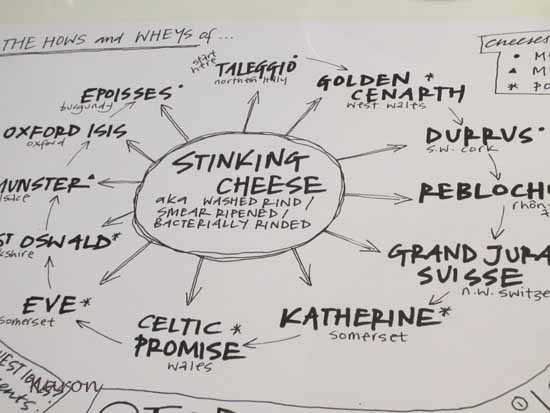 THE HOWS and WHEYS of...
start here
TALEGGIO
northern Italy
GOLDEN *
CENARTH
west wales
DURRUS
s.w. cork
REBLOCH
rhôn
GRAND JURA
SUISSE
n.w. switze
KATHERINE*
somerset
CELTIC *
PROMISE
wales
EVE*
somerset
ST OSWALD*
kshire
MUNSTER
lsace
OXFORD ISIS
oxford
EPOISSES
burgundy
STINKING
CHEESE
aka WASHED RIND/
SMEAR RIPENED/
BACTERIALLY RINDED
cheeses
• M
▲ M
* PO